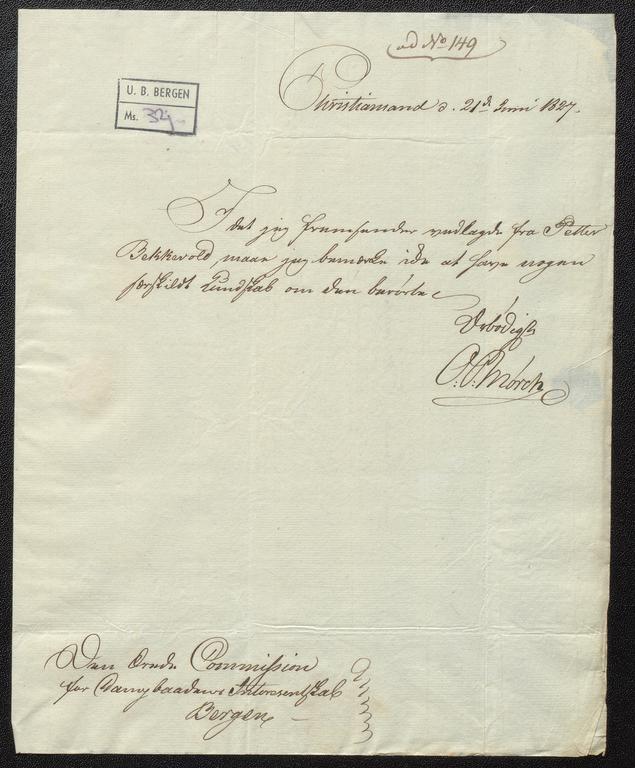 ad No 149
U. B. BERGEN
Ms. 329
Christiansand d. 21de Juni 1827.
Idet jeg fremsender vedlagde fra Petter
Bekkevold maae jeg bemærke ikke at have nogen
særskildt Kundskab om den berörte
Ærbödigst
O. P. Mörch
Den ærede Commission
for Dampbaadens Interesentskab
Bergen